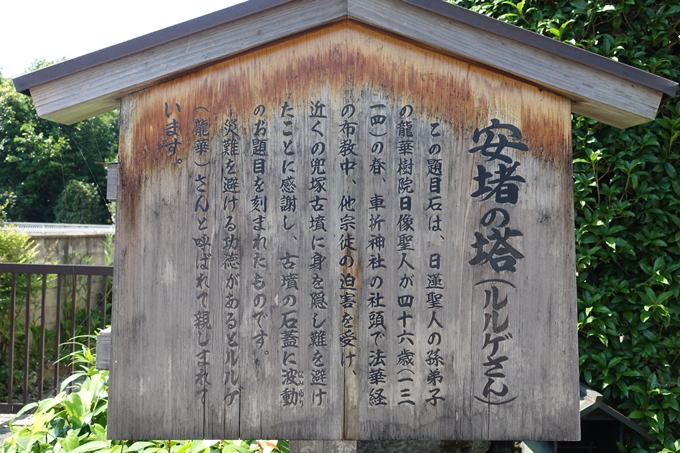 安堵の塔(ルルゲさん)
この題目石は、日蓮聖人の孫弟子
の龍華樹院日像聖人が四十六歳(一三
一四)の春、車折神社の社頭で法華経
の布教中、他宗徒の迫害を受け、
近くの兜塚古墳に身を隠し難を避け
たことに感謝し、古墳の石蓋に波動
のお題目を刻まれたものです。
災難を避ける功徳があるとルルゲ
(龍華)さんと呼ばれて親しまれて
います。